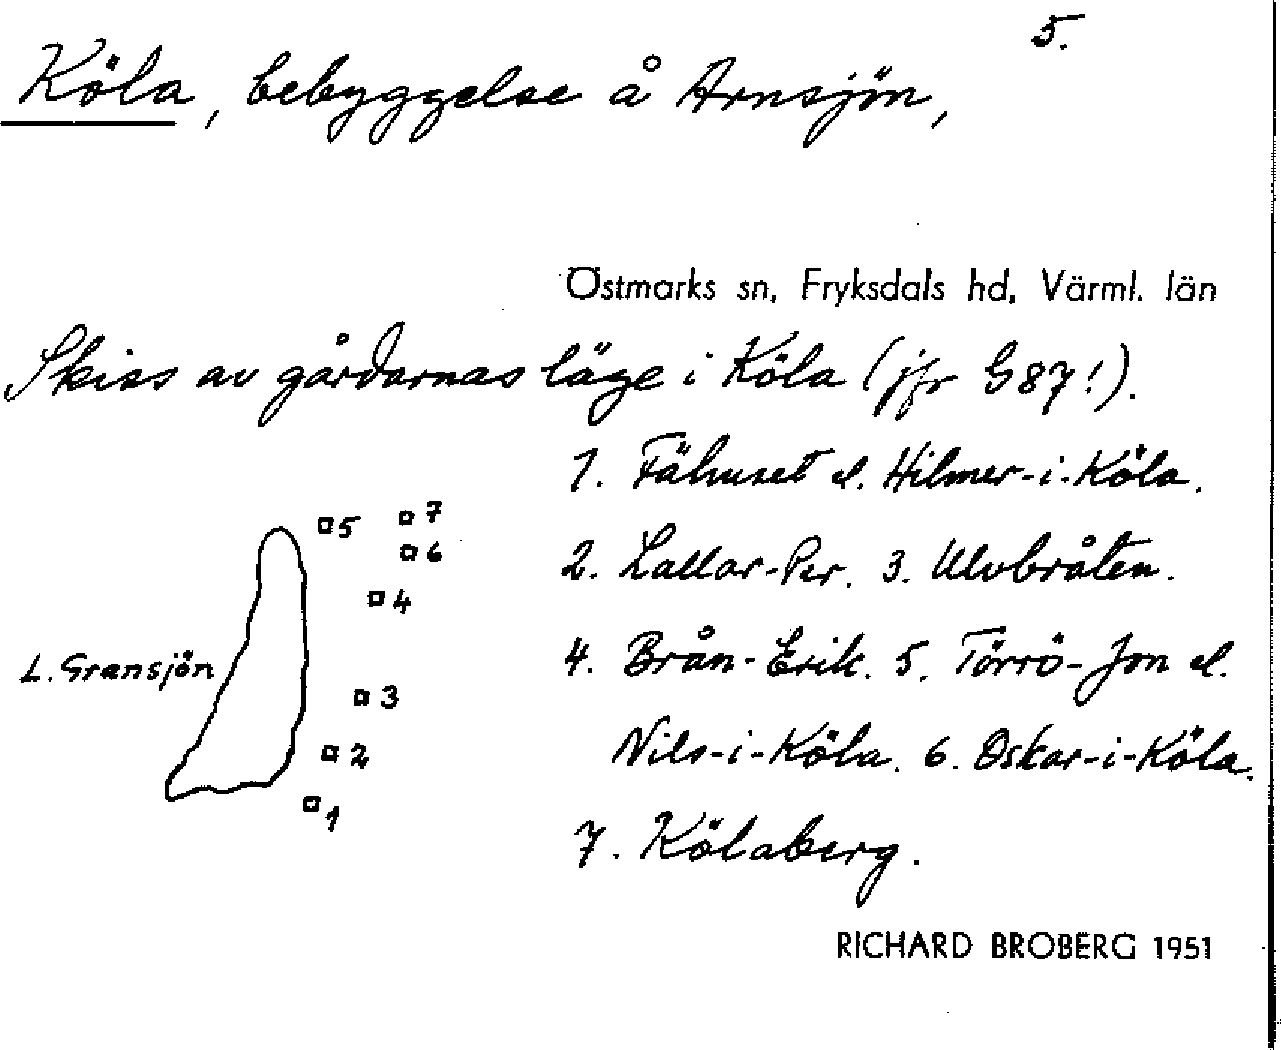 5.
Köla, bebyggelse å Arnsjön,
Östmarks sn, Fryksdals hd, Värml. län
Skiss av gårdarnas läge i Köla (jfr G87!).
1. Fähuset el. Hilmer-i-Köla.
2. Lallar-Per. 3. Ulvbråten.
4. Brån-Erik. 5. Törrö-Jon el.
Nils-i-Köla. 6. Oskar-i-Köla.
7. Kölaberg.
5 7
6
4
L. Gransjön
3
2
1
RICHARD BROBERG 1951